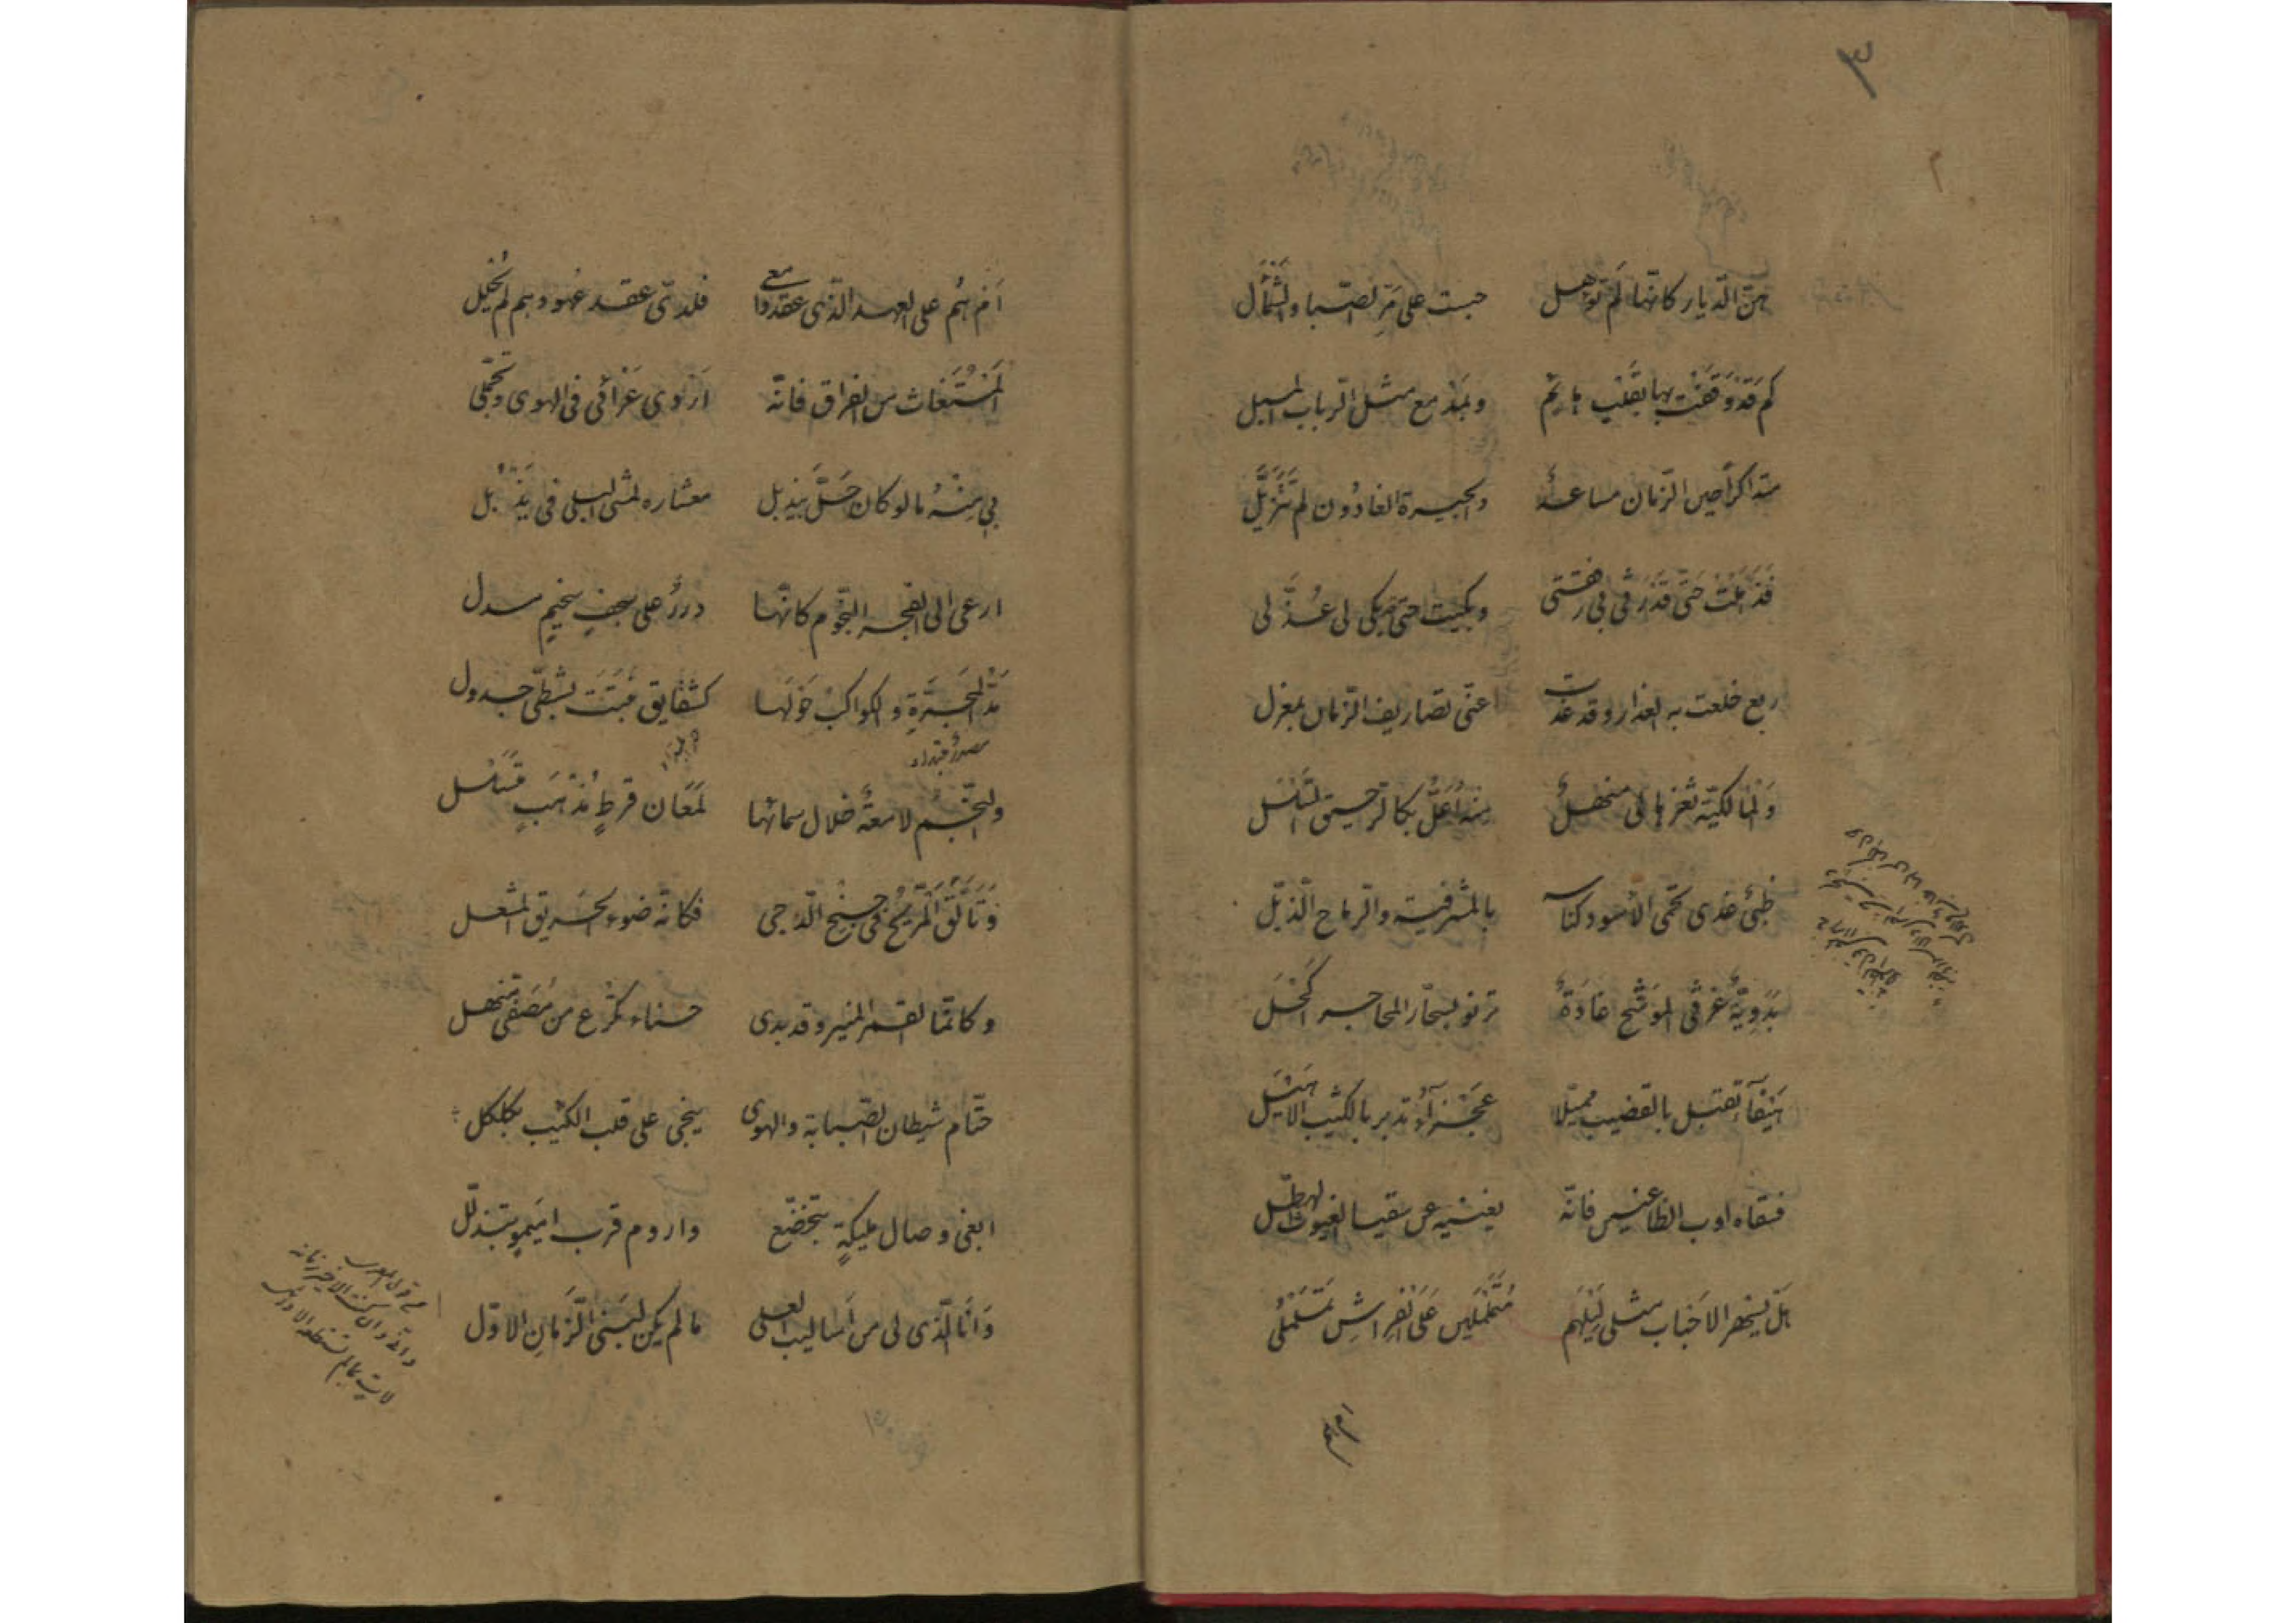 ٣
هنّ الدّيار كانّها لم توهل حبت على مرّ الصّبا والشّمأل
كم قد وقفت بها بقلب هائم وبمدمع مثل الرّباب المسبل
متذاكراً حين الزّمان مساعدٌ والجيرة الغادُون لم تتزيّل
فذهلت حتّى قد رثى لى رفقتى وبكيت حتّى بكى لى عذّلى
ربع خلعت به العذار وقد غدت عنّى تصاريف الزّمان بمعزل
ولمالكيّة ثغرها لى منهلٌ منه أعلّ بكالرّحيق السّلسل
ظبىٌ غدى تحمى الأسود كناسه بالمشرفيّة والرّماح الذبّل
بدويّةٌ غرثى الموشّح غادةٌ ترنو بسحّار المحاجر أكحل
هيفآء تقبل بالقضيب مميّلا عجزآء تدبر بالكثيب الأهيل
فسقاه اوب الظاعنين فانّه يغنيه عن سقيا الغيوث الهطّل
هل يسهر الاحباب مثلى ليلهم متململين على الفراش تململى
ام هم
ام هم على العهد الّذى عقدوا معى فلدىّ عقد عهودهم لم يُحلل
المستغاث من الفراق فانّه أزوى عزائى فى الهوى وتحمّلى
بى منه ما لو كان حلّ بيذبل معشاره لمشى البلى فى يذبل
ارعى الى الفجر النّجوم كانّها دررٌ على سجف سخيم مسدل
مدّ المجرّة والكواكب حولها كشقايق نبتت بشطّى جدول
والنّجم لامعةٌ خلال سمائها لمعان قرطٍ مُذهبٍ متسلسل
وتألّق المرّيخ فى جنح الدّجى فكانّه ضوء الحريق المشعل
وكانّما القمر المنير وقد بدى حسناء تكرع من مصفّى منهل
حتّام شيطان الصّبابة والهوى ينحى على قلب الكئيب بكلكل
ابغى وصال مليكةٍ بتخضّع واروم قرب اميم بتذلّل
وأنا الّذى لى من أساليب العلى ما لم يكن لبنى الزّمان الاوّل
وانّى وان كنت الاخير زمانه
لآتٍ بما لم تستطعه الاوائل